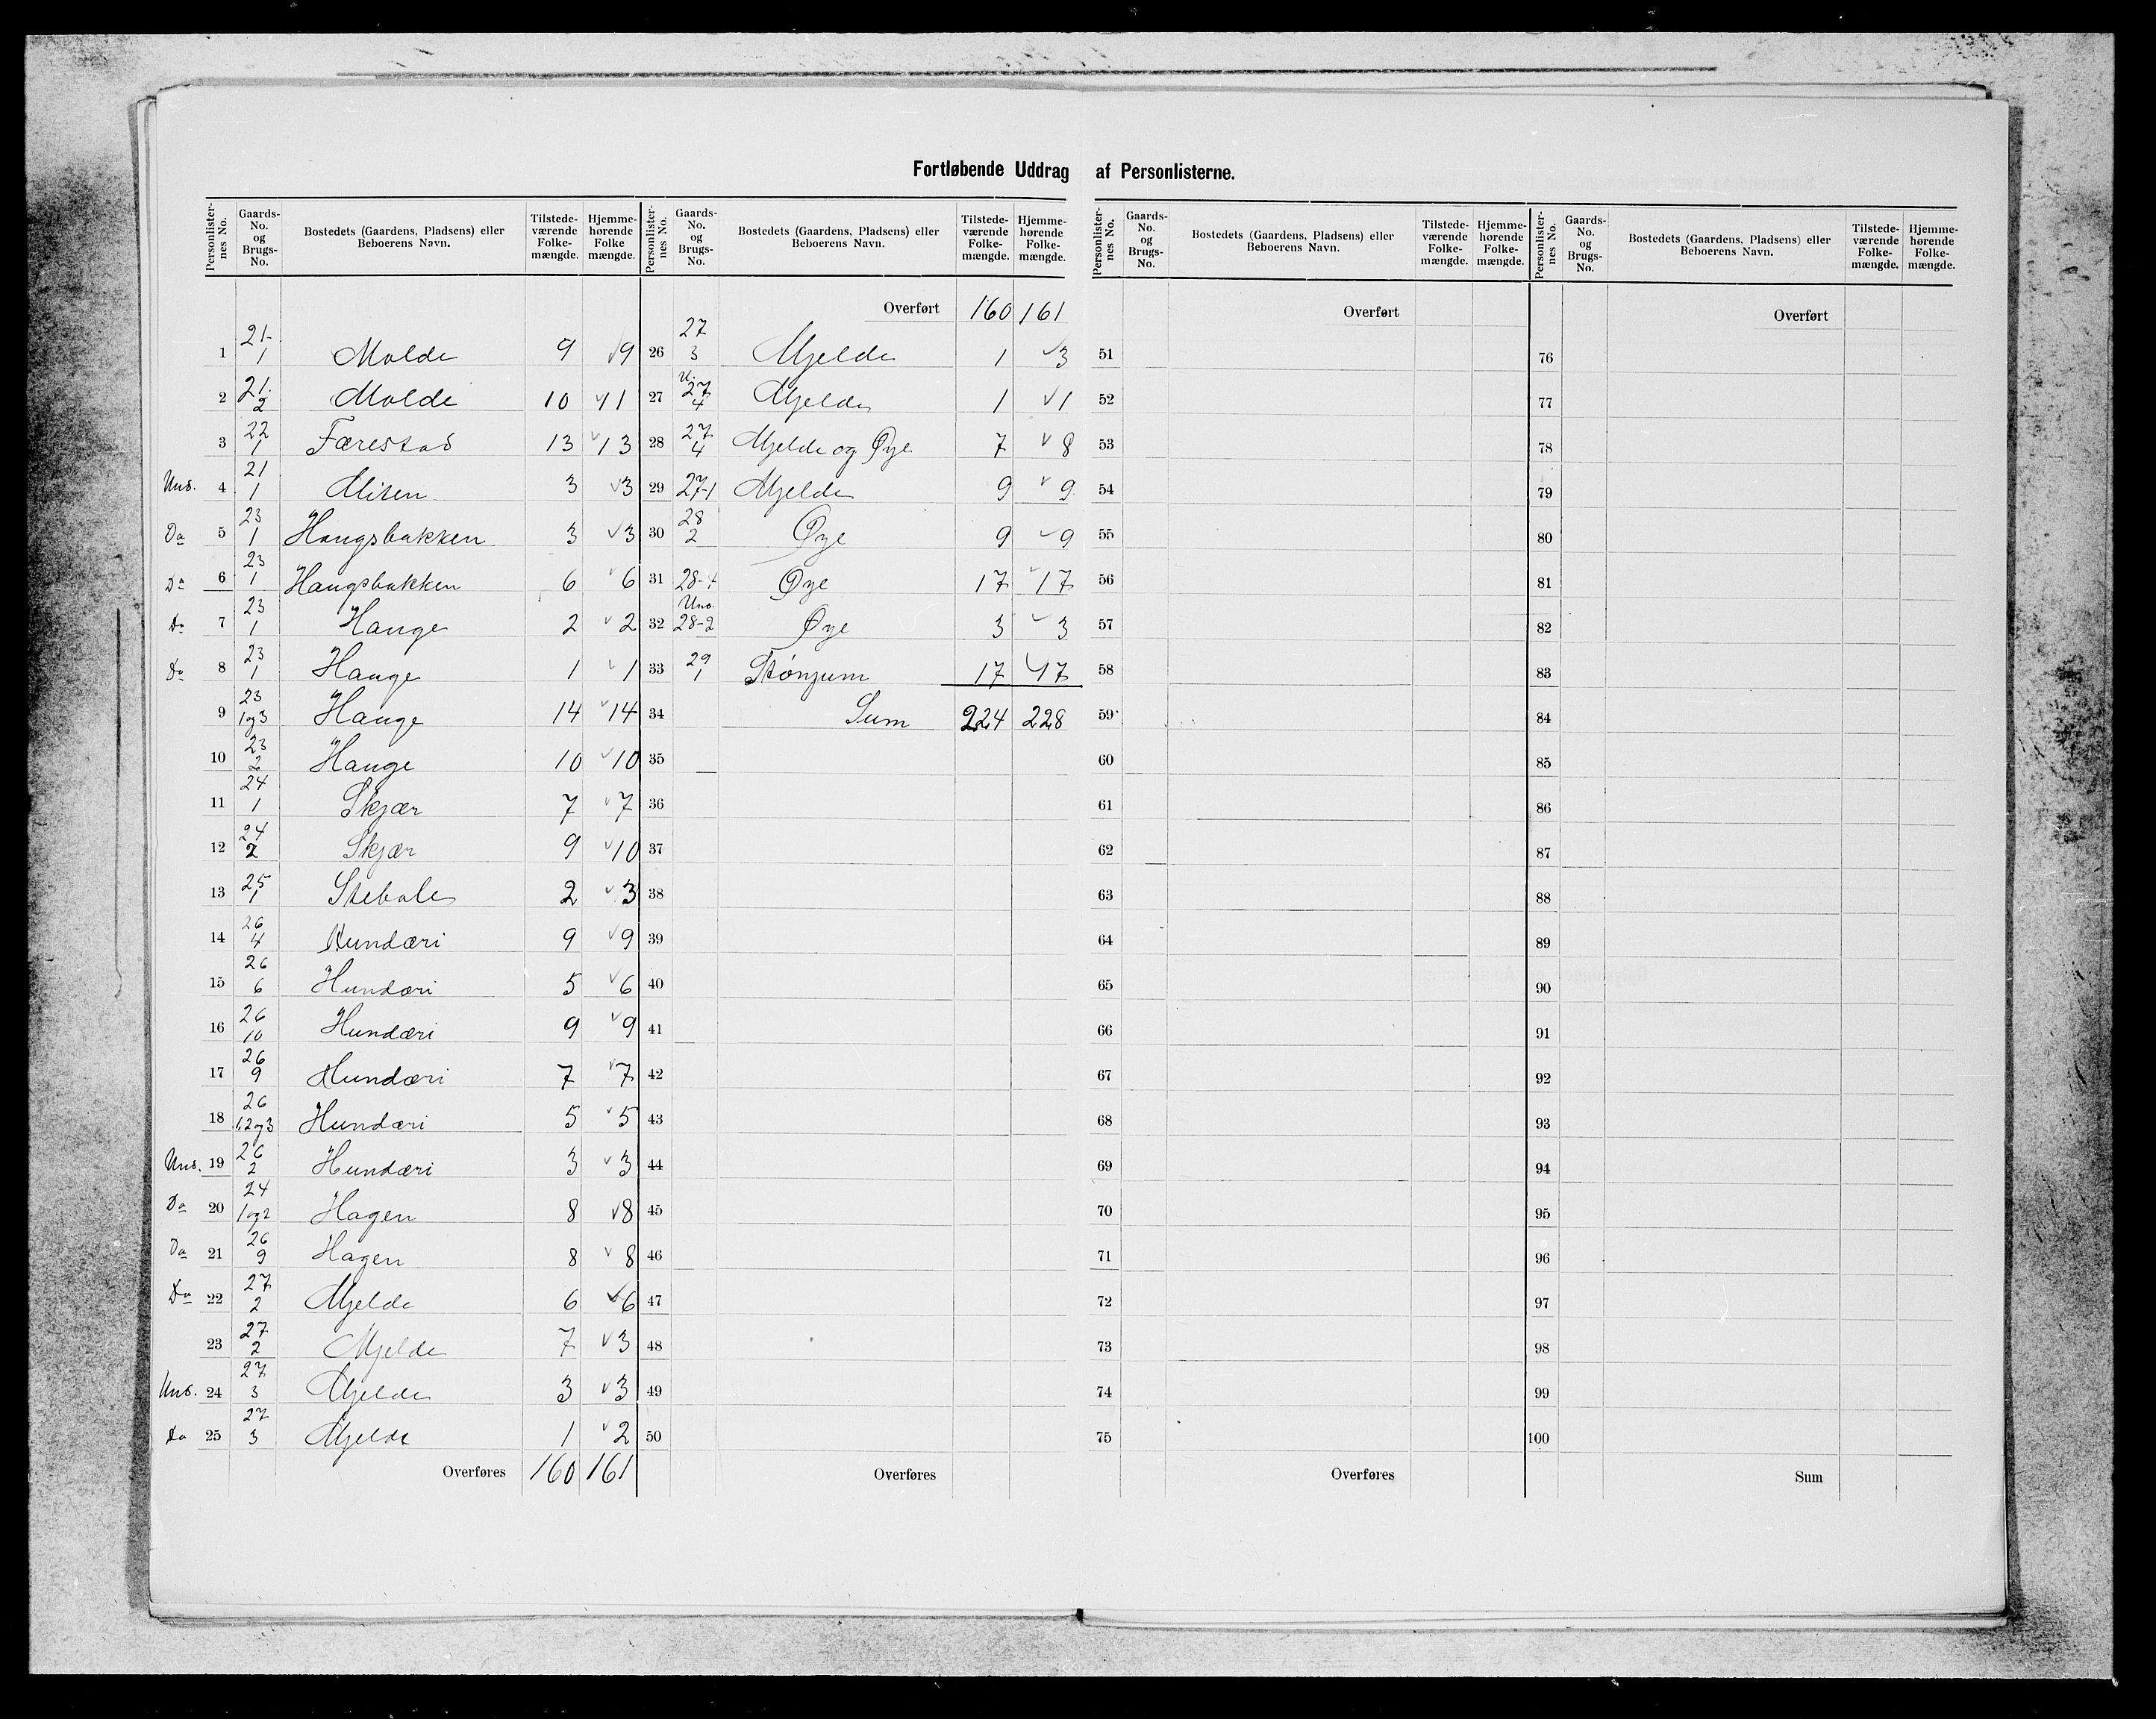 Fortløbende Uddrag af Personlisterne.
Personlisternes No. Gaards-No. og Brugs-No. Bostedets (Gaardens, Pladsens) eller Beboerens Navn. Tilstedeværende Folkemængde. Hjemmehørende Folkemængde.
1 21-1 Molde 9 9
2 21.2 Molde 10 11
3 22 1 Færestad 13 13
Uns. 4 21 1 3 3
Do 5 23 1 Haugsbakken 3 3
Do 6 23 1 Haugsbakken 6 6
Do 7 23 1 Hauge 2 2
Do 8 23 1 Hauge 1 1
9 23 1og3 Hauge 14 14
10 23 2 Hauge 10 10
11 24 1 Skjær 7 7
12 24 2 Skjær 9 10
13 25 1 Stebole 2 3
14 26 4 Hundæri 9 9
15 26 6 Hundæri 5 6
16 26 10 Hundæri 9 9
17 26 9 Hundæri 7 7
18 26 1,2og3 Hundæri 5 5
Uns. 19 26 2 Hundæri 3 3
Do 20 24 1og2 Hagen 8 8
Do 21 26 9 Hagen 8 8
Do 22 27 2 Mjelde 6 6
23 27 2 Mjelde 7 3
Uns. 24 27 3 Mjelde 3 3
Do 25 27 3 Mjelde 1 2
Overføres 160 161
Personlisternes No. Gaards-No. og Brugs-No. Bostedets (Gaardens, Pladsens) eller Beboerens Navn. Tilstedeværende Folkemængde. Hjemmehørende Folkemængde.
Overført 160 161
26 27 3 Mjelde 1 3
27 U. 27 4 Mjelde 1 1
28 27 4 Mjelde og Øye 7 8
29 27-1 Mjelde 9 9
30 28 2 Øye 9 9
31 28-1 Øye 17 17
32 Uns. 28-2 Øye 3 3
33 29 1 Stønjum 17 17
34 Sum 224 228
35
36
37
38
39
40
41
42
43
44
45
46
47
48
49
50
Overføres
Personlisternes No. Gaards-No. og Brugs-No. Bostedets (Gaardens, Pladsens) eller Beboerens Navn. Tilstedeværende Folkemængde. Hjemmehørende Folkemængde.
Overført
51
52
53
54
55
56
57
58
59
60
61
62
63
64
65
66
67
68
69
70
71
72
73
74
75
Overføres
Personlisternes No. Gaards-No. og Brugs-No. Bostedets (Gaardens, Pladsens) eller Beboerens Navn. Tilstedeværende Folkemængde. Hjemmehørende Folkemængde.
Overført
76
77
78
79
80
81
82
83
84
85
86
87
88
89
90
91
92
93
94
95
96
97
98
99
100
Sum